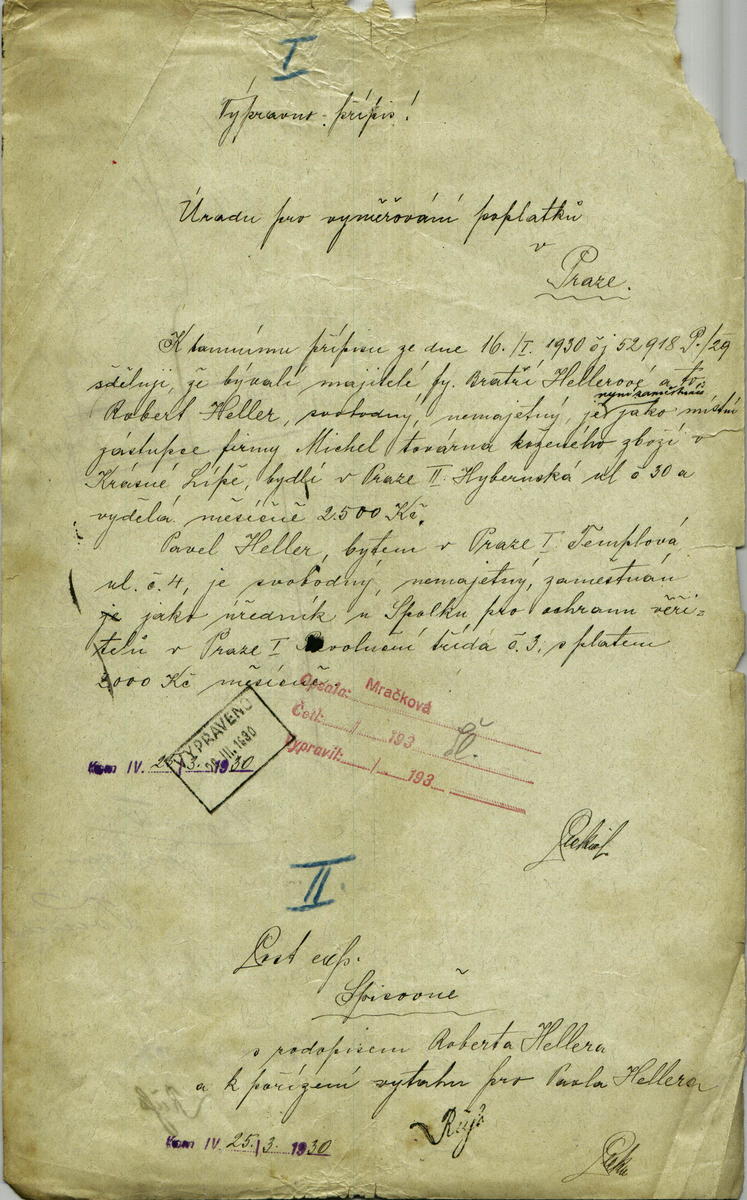 I
Výpravna přípis!
Úřadu pro vyměřování poplatků
v
Praze.
K tamnímu přípisu ze dne 16./I. 1930 čj 52918 P./29
sděluji, že bývalí majitelé fy. Bratří Hellerové a to:
Robert Heller, svobodny, nemajetný, je nyní zaměstnán jako místní
zástupce firmy Michel továrna koženého zboží v
Krásné Lípě, bydlí v Praze II. Hybernská ul č 30 a
vydělá měsíčně 2.500 Kč.
Pavel Heller, bytem v Praze I Templová
ul. č. 4, je svobodný, nemajetný, zaměstnán
je jako úředník u Spolku pro ochranu věři-
telů v Praze I Revoluční třída č. 3. s platem
2000 Kč měsíčně.
Opsala: Mračková
Četl: / 193
Vypravil: / 193
VYPRAVENO
III. 1930
Kom IV. 25/3. 1930
II.
Post exp.
Spisovně
s rodopisem Roberta Hellera
a k pořízení výtahu pro Pavla Hellera
Kom IV. 25./3. 1930